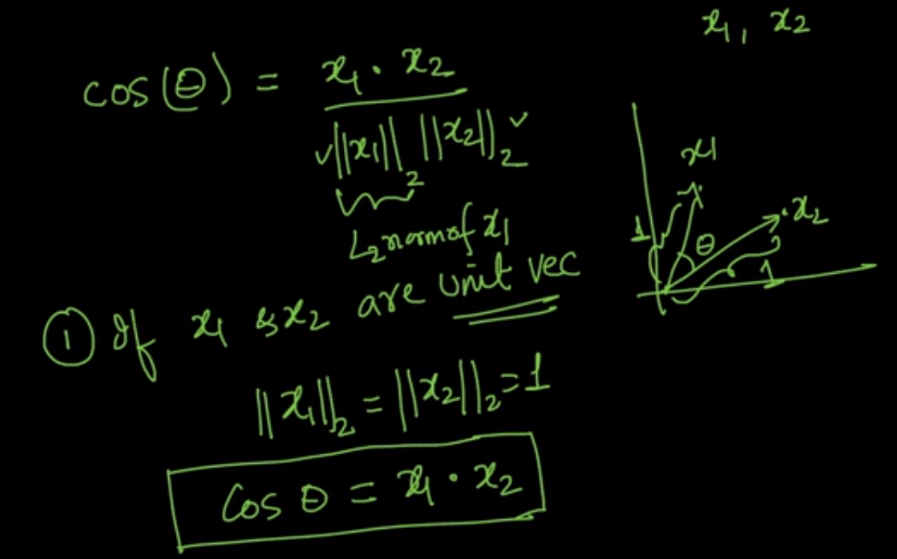 x₁, x₂
cos(θ) = x₁ · x₂ / ||x₁||₂ ||x₂||₂
L₂ norm of x₁
x₁
x₂
θ
1
1
① If x₁ & x₂ are unit vec
||x₁||₂ = ||x₂||₂ = 1
Cos θ = x₁ · x₂